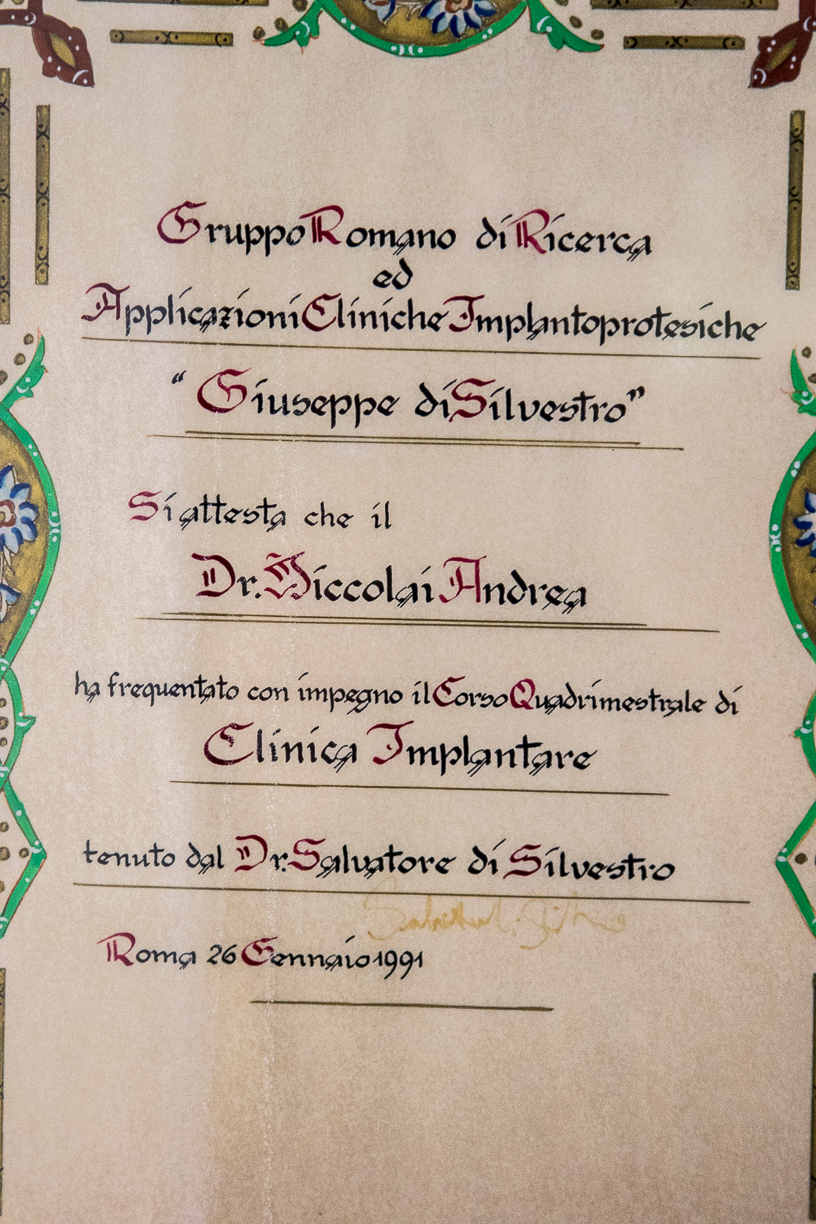 Gruppo Romano di Ricerca
ed
Applicazioni Cliniche Implantoprotesiche
"Giuseppe di Silvestro"
Si attesta che il
Dr. Niccolai Andrea
ha frequentato con impegno il Corso Quadrimestrale di
Clinica Implantare
tenuto dal Dr. Salvatore di Silvestro
Roma 26 Gennaio 1991